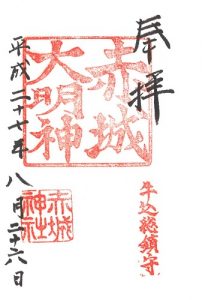 奉拝
赤城
大明神
牛込総鎮守
赤城
神社
平成二十七年八月二十六日